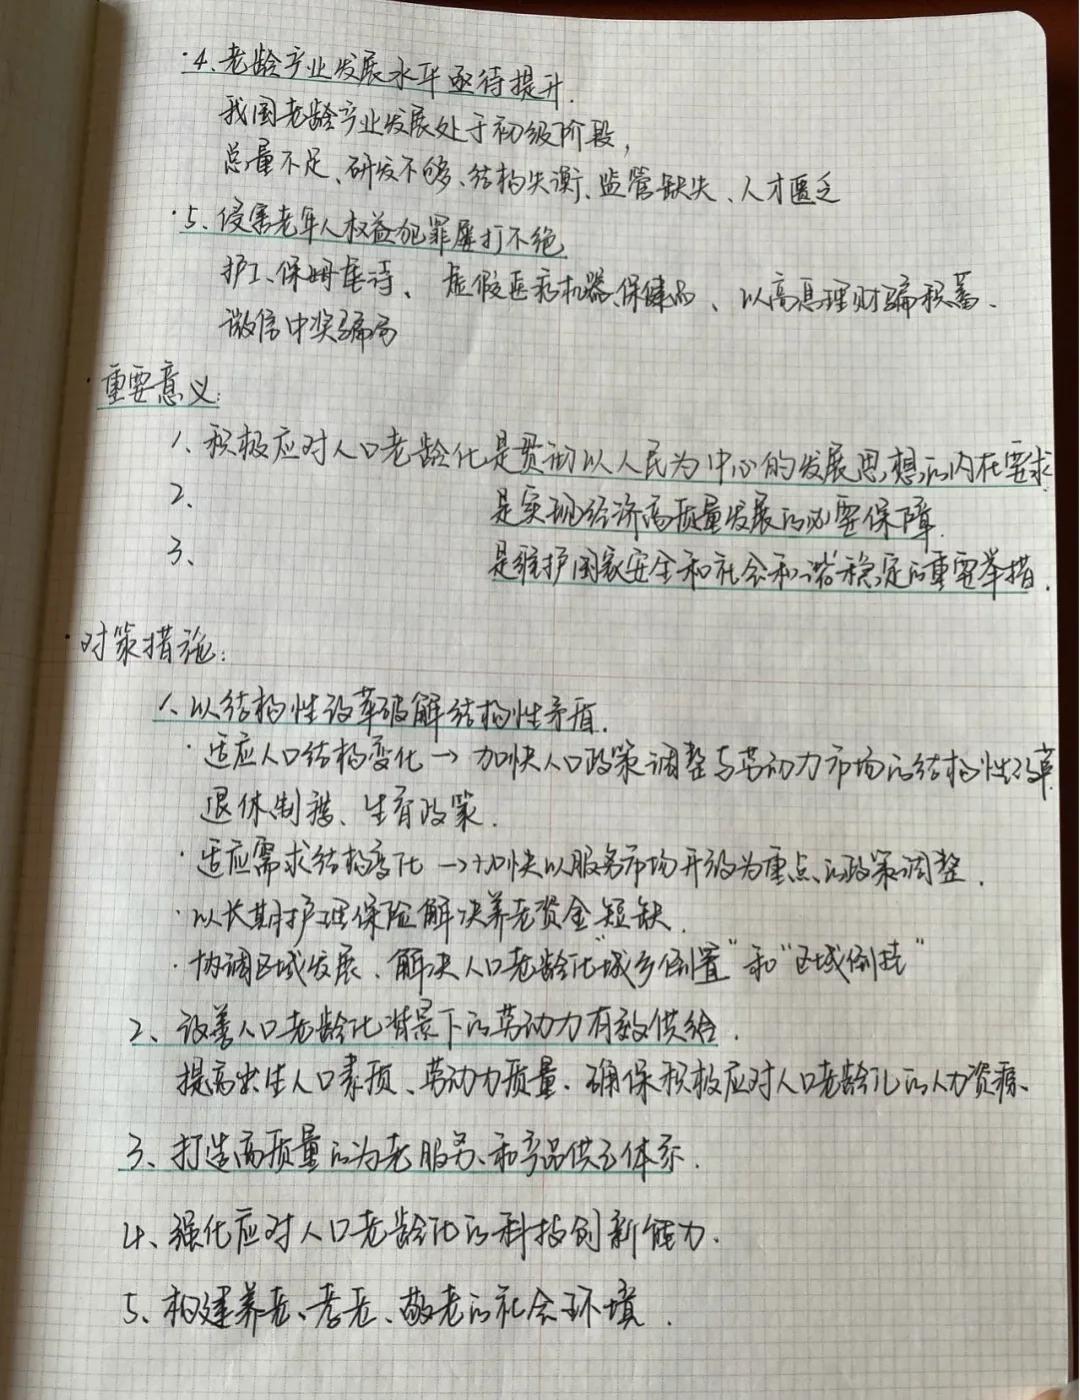 ·4、老龄产业发展水平亟待提升.
我国老龄产业发展处于初级阶段,
总量不足、研发不够、结构失衡、监管缺失、人才匮乏
·5、侵害老年人权益犯罪屡打不绝
护工、保姆虐待、虚假医疗机器保健品、以高息理财骗积蓄、
微信中奖骗局
·重要意义:
1、积极应对人口老龄化是贯彻以人民为中心的发展思想的内在要求.
2、是实现经济高质量发展的必要保障.
3、是维护国家安全和社会和谐稳定的重要举措.
·对策措施:
1、以结构性改革破解结构性矛盾.
·适应人口结构变化→加快人口政策调整与劳动力市场的结构性改革.
退休制度、生育政策.
·适应需求结构变化→加快以服务市场开放为重点的政策调整.
·以长期护理保险解决养老资金短缺.
·协调区域发展、解决人口老龄化"城乡倒置"和"区域倒挂"
2、改善人口老龄化背景下的劳动力有效供给.
提高出生人口素质、劳动力质量.确保积极应对人口老龄化的人力资源、
3、打造高质量的为老服务、和产品供应体系.
4、强化应对人口老龄化的科技创新能力.
5、构建养老、孝老、敬老的社会环境.